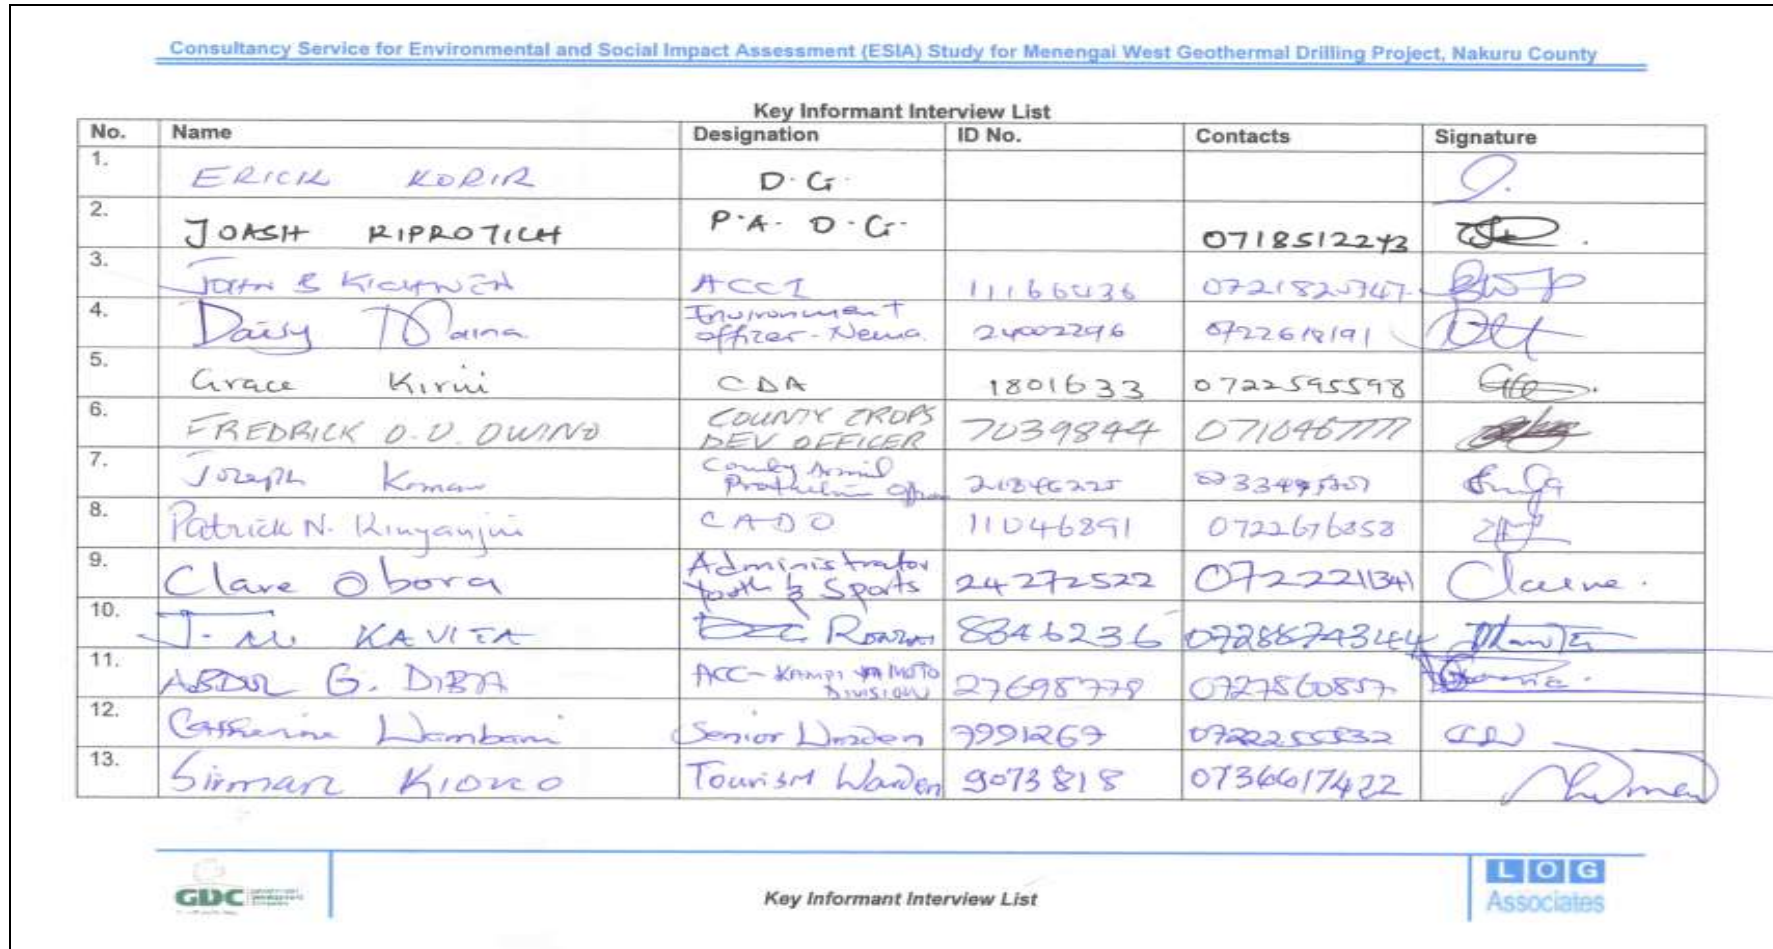 Consultancy Service for Environmental and Social Impact Assessment (ESIA) Study for Menengai West Geothermal Drilling Project, Nakuru County
Key Informant Interview List
No. Name Designation ID No. Contacts Signature
1. ERICK KORIR D.G.
2. JOASH KIPROTICH P.A. D.G. 0718512243
3. JOHN B ACCI 11166436
4. Daisy Maina Environment officer-Nema 24002296
5. Grace Kirui CDA 1801633 0722595598
6. FREDRICK O.U. OWINO COUNTY CROPS DEV OFFICER 7039844
7. Joseph County
8. Patrick N. Kinyanjui CADO 11046891
9. Clare Obora Administrator Youth & Sports 24272522 0722221341
10. J.M. KAVITA 8346236
11. ABDUL G. DIBA ACC-KAMPI YA MOTO DIVISION 27698778 0727860857
12. Catherine Wambani Senior Warden 7991269
13. KIOKO Tourism Warden 9073818 0736617422
GDC
Key Informant Interview List
LOG
Associates